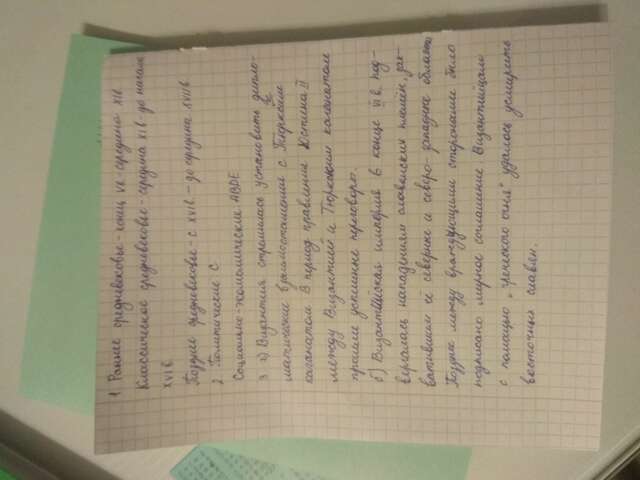 1 Раннее средневековье - конец Vв - середина XIв
Классическое средневековье - середина XIв до начала
XVIв
Позднее средневековье - с XVIв - до середина XVIIв
2 Политические C
Социально-экономические ABDE
3 а) Византия стремилась установить дипло-
матические взаимоотношения с Тюркским
каганатом. В период правления Юстина II
между Византией и Тюркским каганатом
прошли успешные переговоры.
б) Византийская империя в конце VIв. под-
вергалась нападениям славянских племён, зах-
ватившим её северные и северо-западные области,
Позднее между враждующими сторонами было
подписано мирное соглашение. Византийцам
с помощью "греческого огня" удалось усмирить
восточных славян.